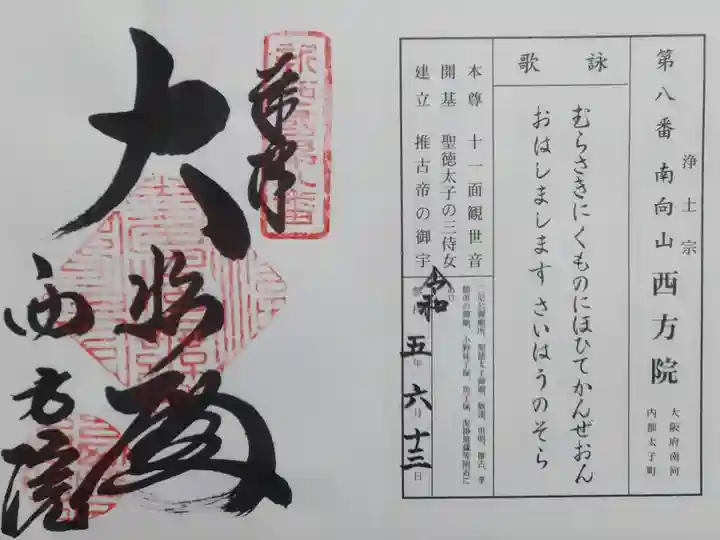 第八番 南向山 西方院
浄土宗
大阪府南河
内郡太子町
詠歌
むらさきにくものにほひてかんぜおん
おはしましますさいはうのそら
本尊 十一面観世音
開基 聖徳太子の三侍女
建立 推古帝の御宇
令和五年六月十三日
奉拝
大悲殿
西方院